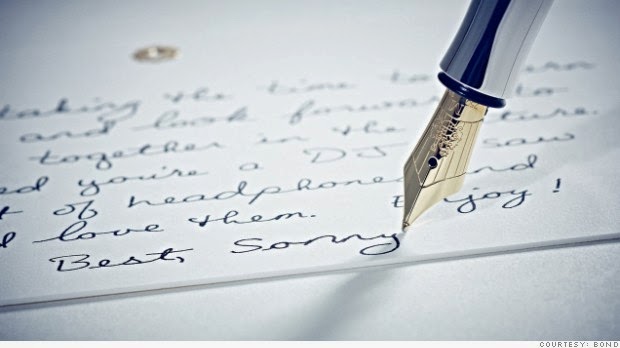 taking the time to
and look forward to
together in the
you're a DJ saw
of headphones and
love them. Enjoy!
Best, Sonny
COURTESY: BOND